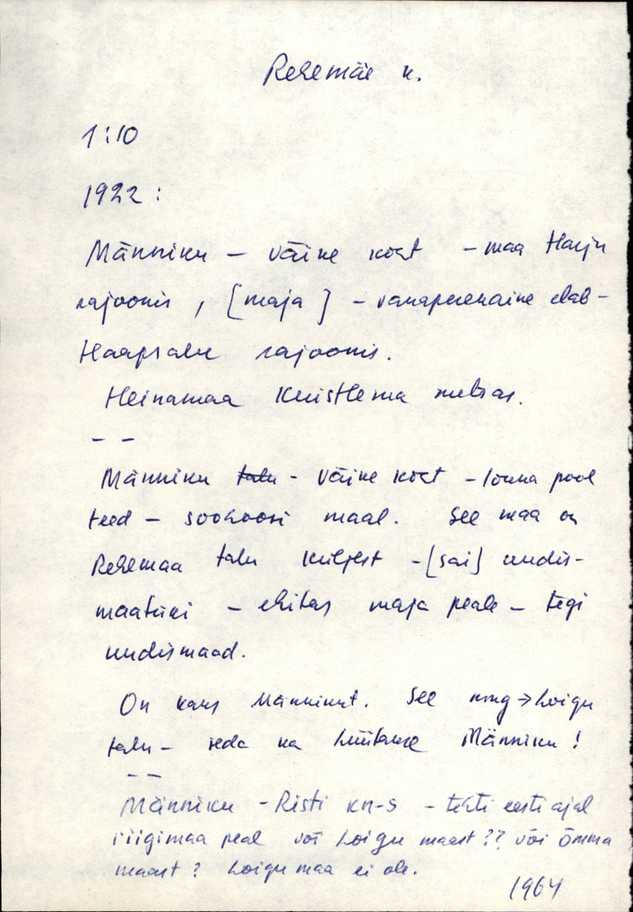 Rehemäe k.
1:10
1922:
Männiku – väike koht – maa Harju
rajoonis, [maja] – vanaperenaine elab –
Haapsalu rajoonis.
Heinamaa Kuistlema metsas.
– –
Männiku talu – väike koht – lõuna pool
teed – soohoori maal. See maa on
Rehemaa talu küljest – [sai] uudis-
maatüki – ehitas maja peale – tegi
uudismaad.
On kaks Männikut. See ning → Loigu
talu – seda ka hüütakse Männiku!
– –
Männiku – Risti kn-s – tehti eesti ajal
riigimaa peal või Loigu maast?? või Õmma
maast? Loigu maa ei ole.
1964